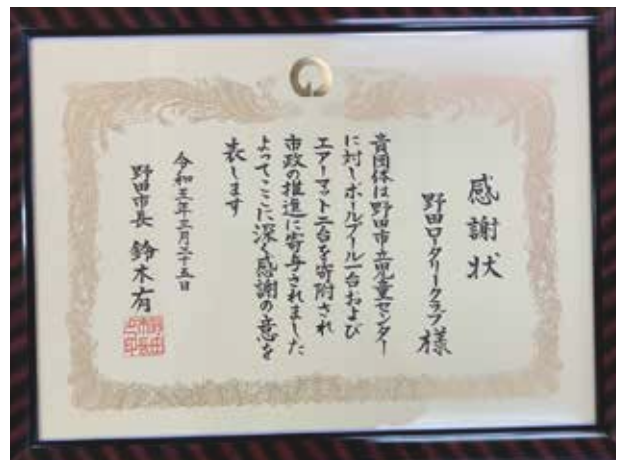 感謝状
野田ロータリークラブ様
貴団体は野田市立児童センター
に対しボールプール一台および
エアーマット二台を寄附され
市政の推進に寄与されました
よってここに深く感謝の意を
表します
令和三年三月二十五日
野田市長 鈴木有